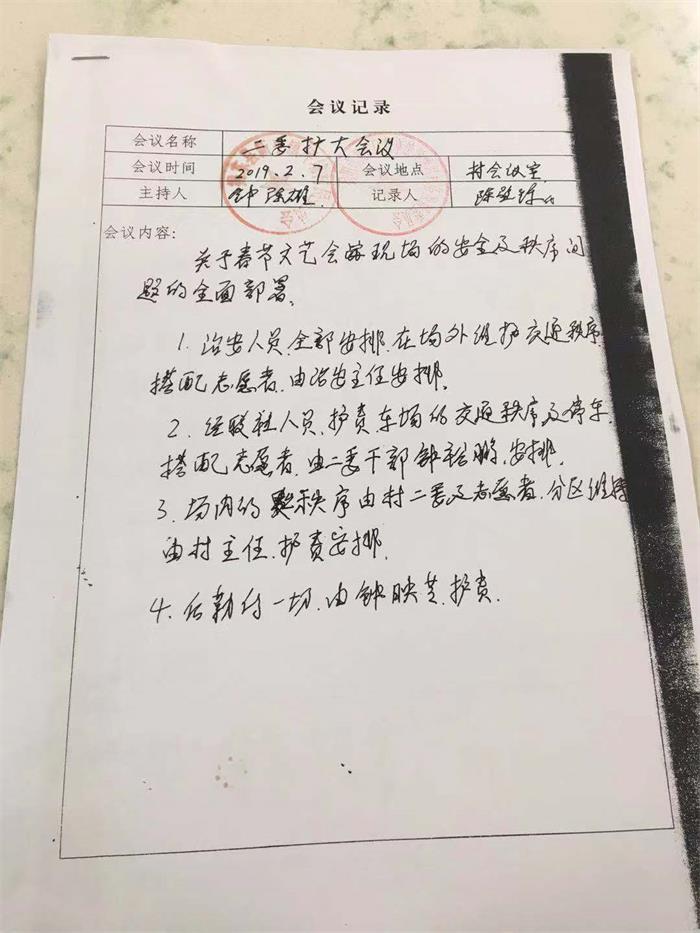 会议记录
会议名称 二委扩大会议
会议时间 2019.2.7 会议地点 村会议室
主持人 钟 雄 记录人 陈
会议内容:
关于春节文艺会 现场的安全及秩序问
题的全面部署。
1. 治安人员、全部安排、在场外维护交通秩序
搭配志愿者、由治安主任安排。
2. 经联社人员、护责车场的交通秩序及停车、
搭配志愿者、由二委干部钟 鹏、安排。
3. 场内的 秩序由村二委及志愿者、分区维持
由村主任、护责安排、
4. 后勤 一切、由钟映芝、护责.